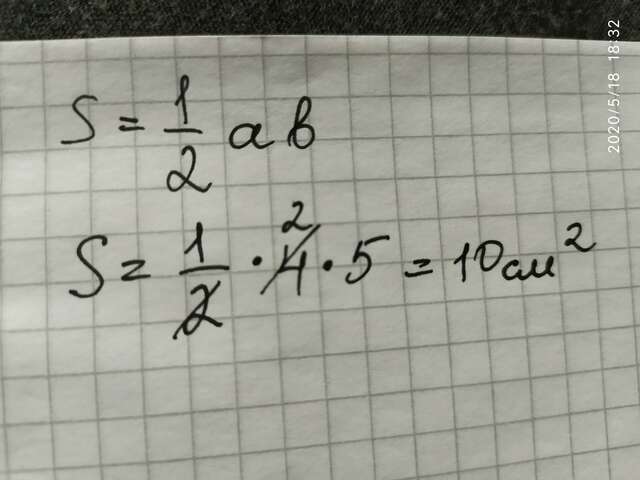 S = 1/2 ab
S = 1/2 · 4 2 · 5 = 10 см²
2020/5/18 18:32